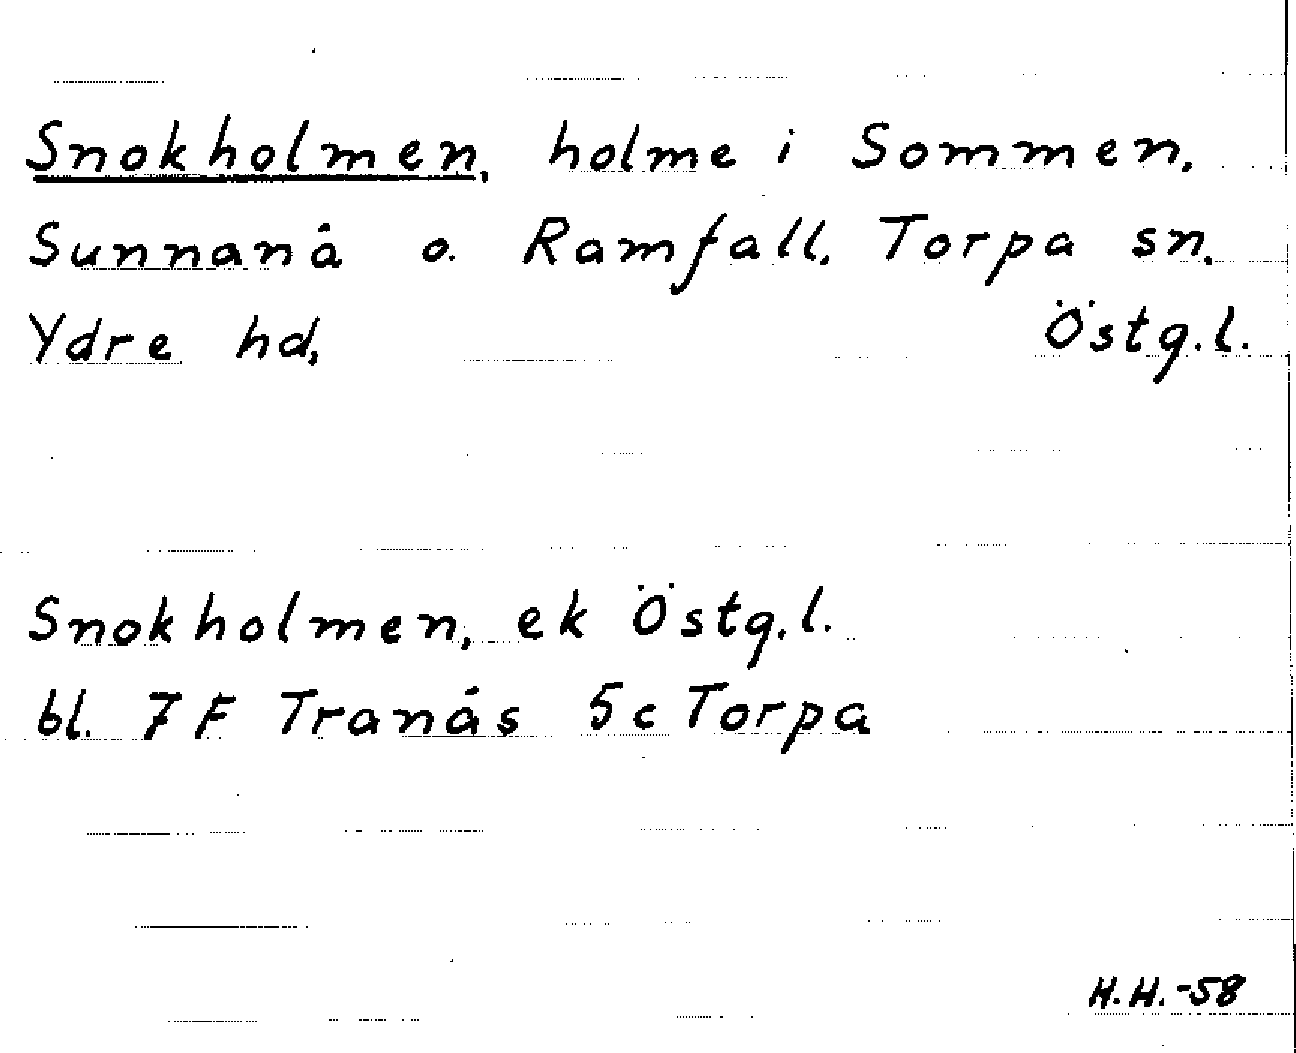 Snokholmen, holme i Sommen.
Sunnanå o. Ramfall, Torpa sn.
Ydre hd, Östg.l.
Snokholmen, ek Östg.l.
bl. 7 F Tranås 5c Torpa
H.H.-58